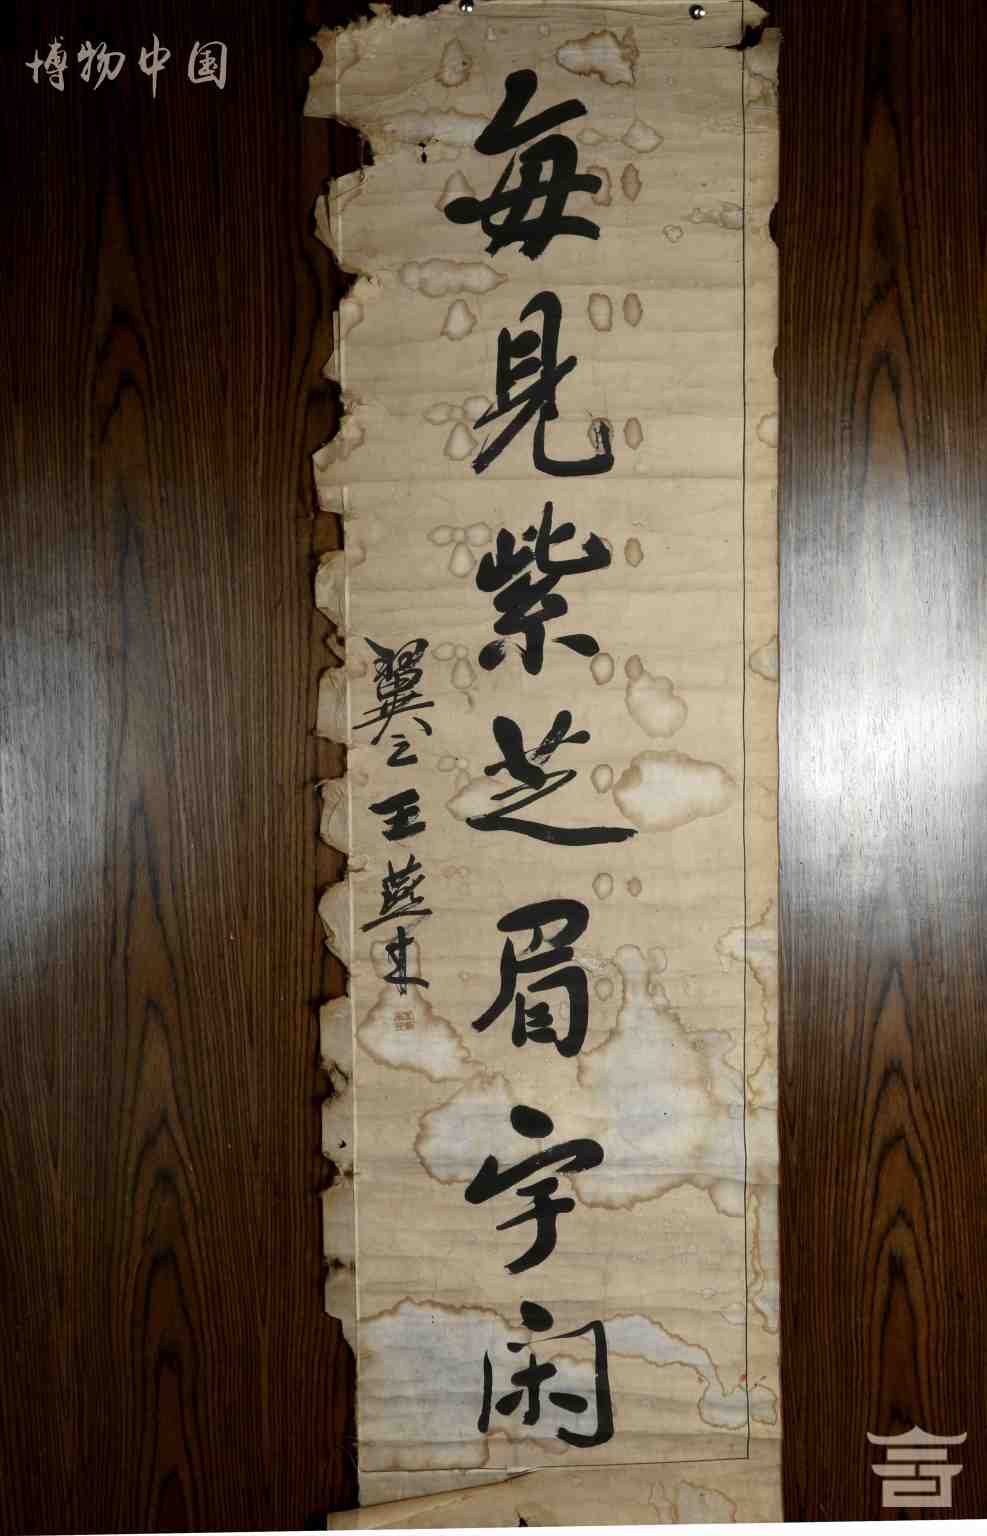 博物中国
每见紫芝眉宇闲
翼之王燕来